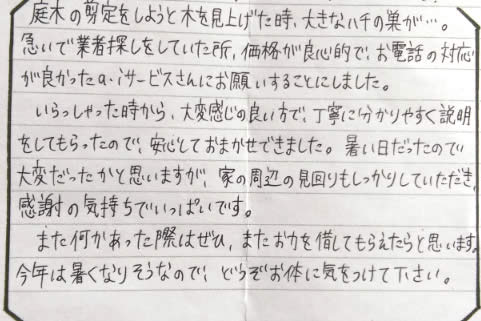 庭木の剪定をしようと木を見上げた時、大きなハチの巣が…。
急いで業者探しをしていた所、価格が良心的で、お電話の対応
が良かったa・iサービスさんにお願いすることにしました。
いらっしゃった時から、大変感じの良い方で、丁寧に分かりやすく説明
をしてもらったので、安心しておまかせできました。暑い日だったので
大変だったかと思いますが、家の周辺の見回りもしっかりしていただき、
感謝の気持ちでいっぱいです。
また何かあった際はぜひ、またお力を借してもらえたらと思います。
今年は暑くなりそうなので、どうぞお体に気をつけて下さい。